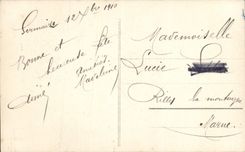 12 Xbre 1910
Bonne et
heureuse fête
Madeleine
Aimé
Mademoiselle
Lucie
Rilly la montagne
Marne